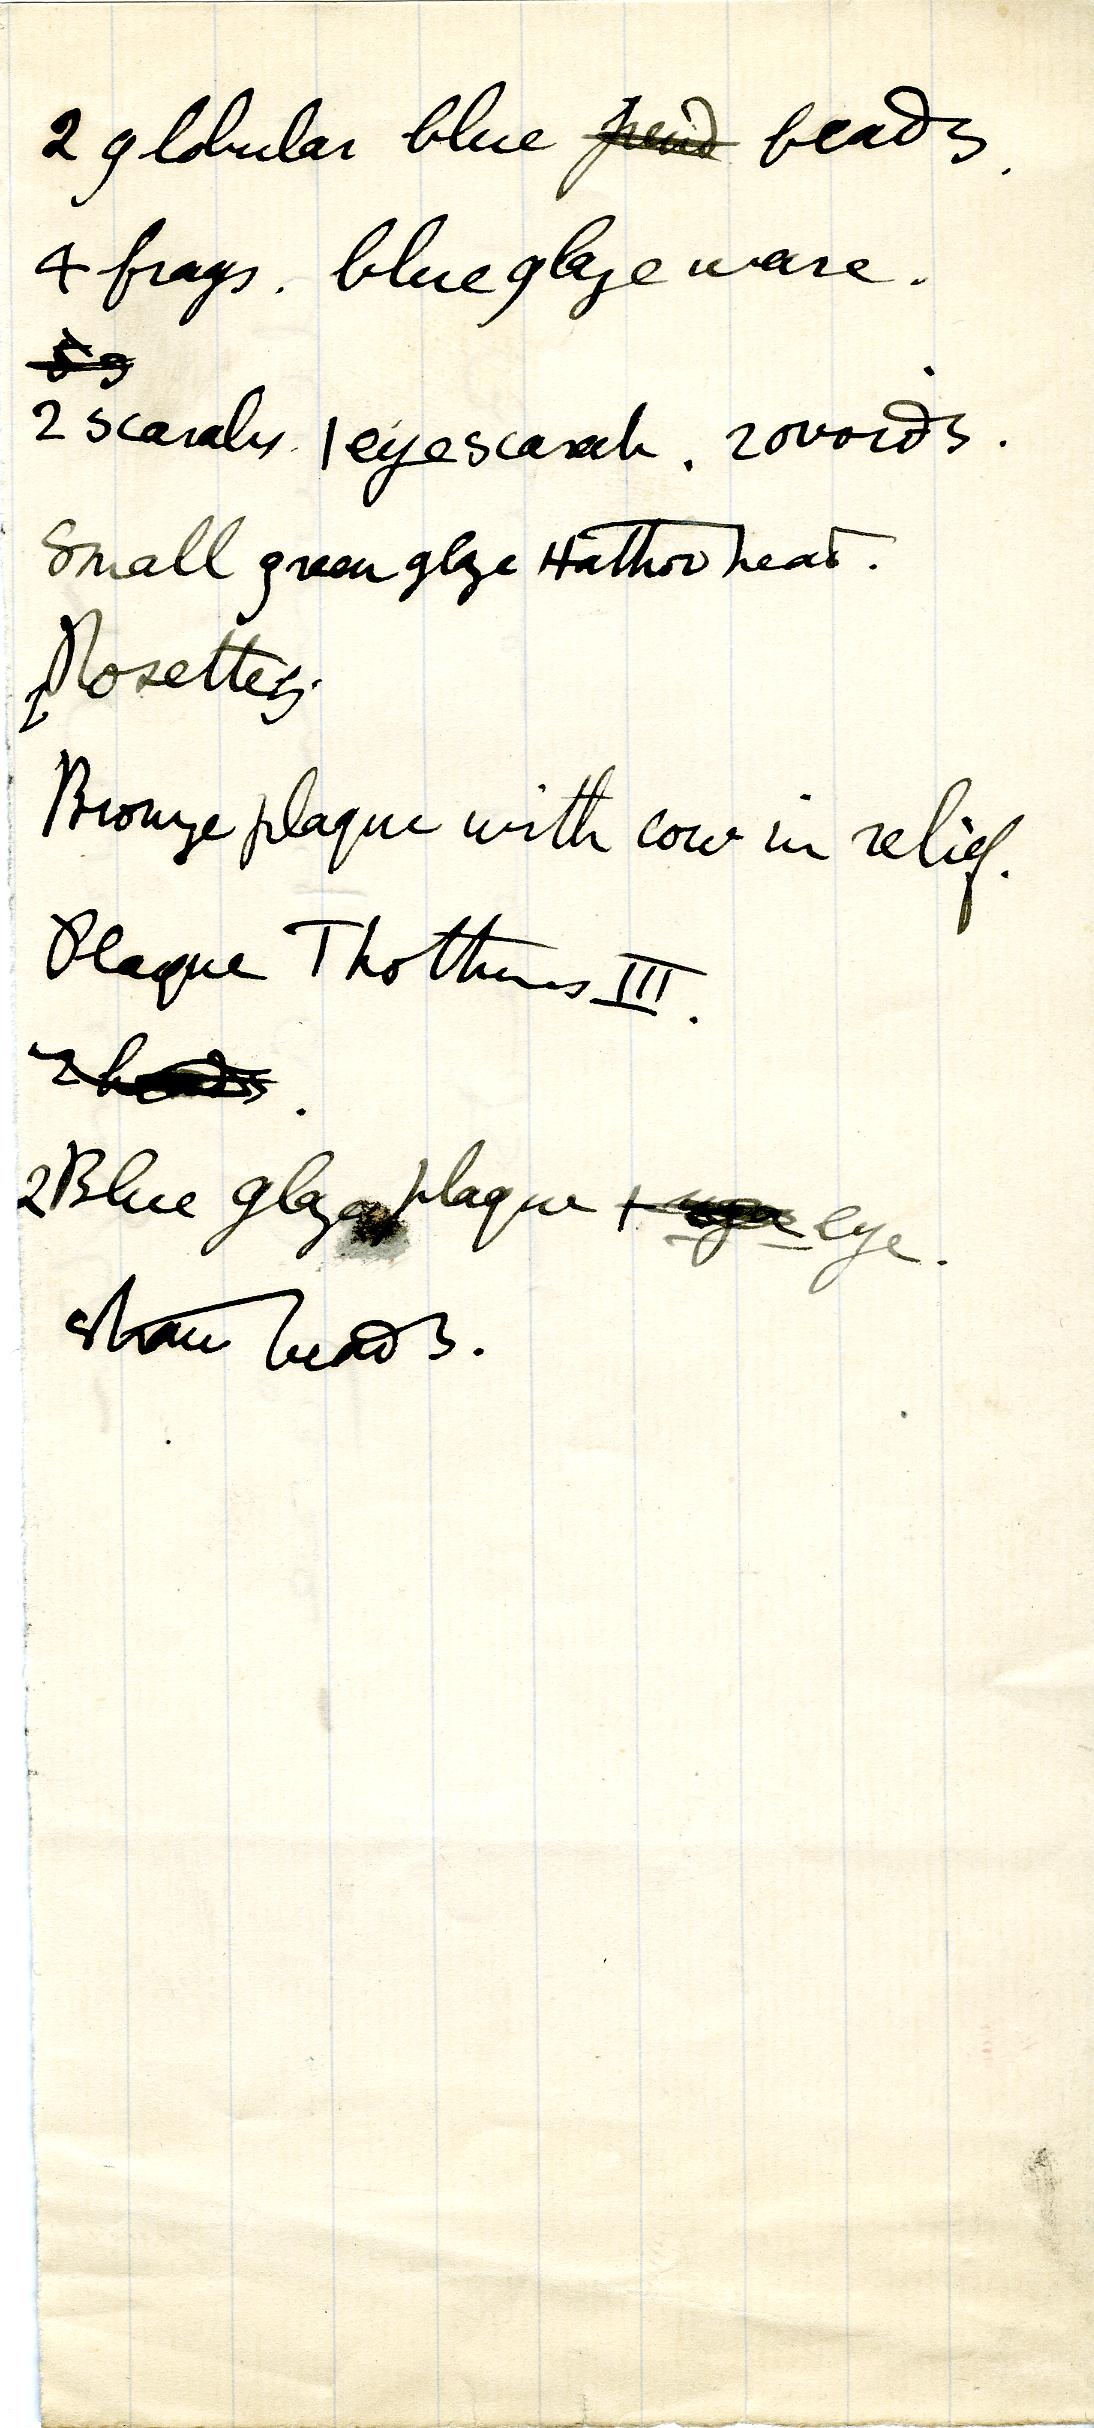 2 globular blue pend beads.
4 frags. blue glaze ware.
2 scarabs. 1 eye scarab. 2 ovoids.
Small green glaze Hathor head.
Rosettes.
Bronze plaque with cow in relief.
Plaque Thothmes III.
2 beads.
2 Blue glaze plaque + eye.
straw beads.